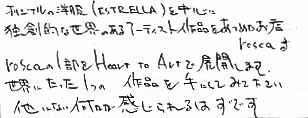 オリジナルの洋服(ESTRELLA)を中心に
独創的な世界のあるアーティスト作品をあつめたお店
roscaです
roscaの1部をHeart to Artで展開します。
世界にたった1つの作品を手にしてみて下さい
他にない何かが感じられるはずです